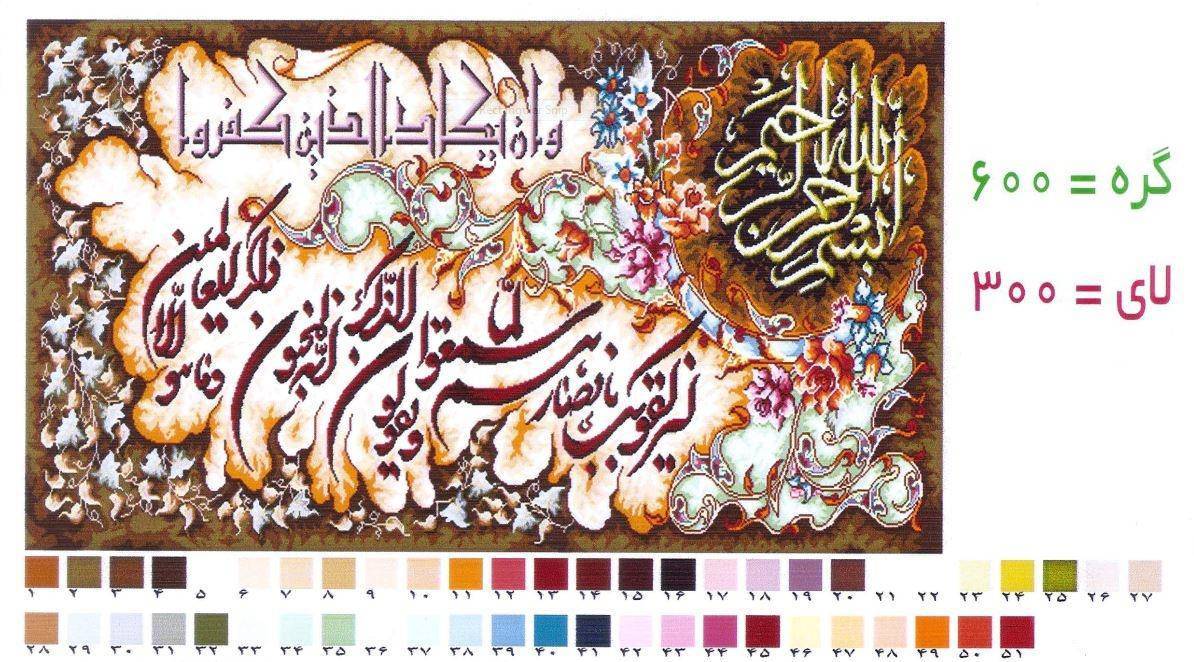 بسم الله الرحمن الرحیم
وان یکاد الذین کفروا
لیزلقونک بابصارهم لما سمعوا الذکر ویقولون انه لمجنون
وما هو الا ذکر للعالمین
گره = ۶۰۰
لای = ۳۰۰
۱ ۲ ۳ ۴ ۵ ۶ ۷ ۸ ۹ ۱۰ ۱۱ ۱۲ ۱۳ ۱۴ ۱۵ ۱۶ ۱۷ ۱۸ ۱۹ ۲۰ ۲۱ ۲۲ ۲۳ ۲۴ ۲۵ ۲۶ ۲۷
۲۸ ۲۹ ۳۰ ۳۱ ۳۲ ۳۳ ۳۴ ۳۵ ۳۶ ۳۷ ۳۸ ۳۹ ۴۰ ۴۱ ۴۲ ۴۳ ۴۴ ۴۵ ۴۶ ۴۷ ۴۸ ۴۹ ۵۰ ۵۱